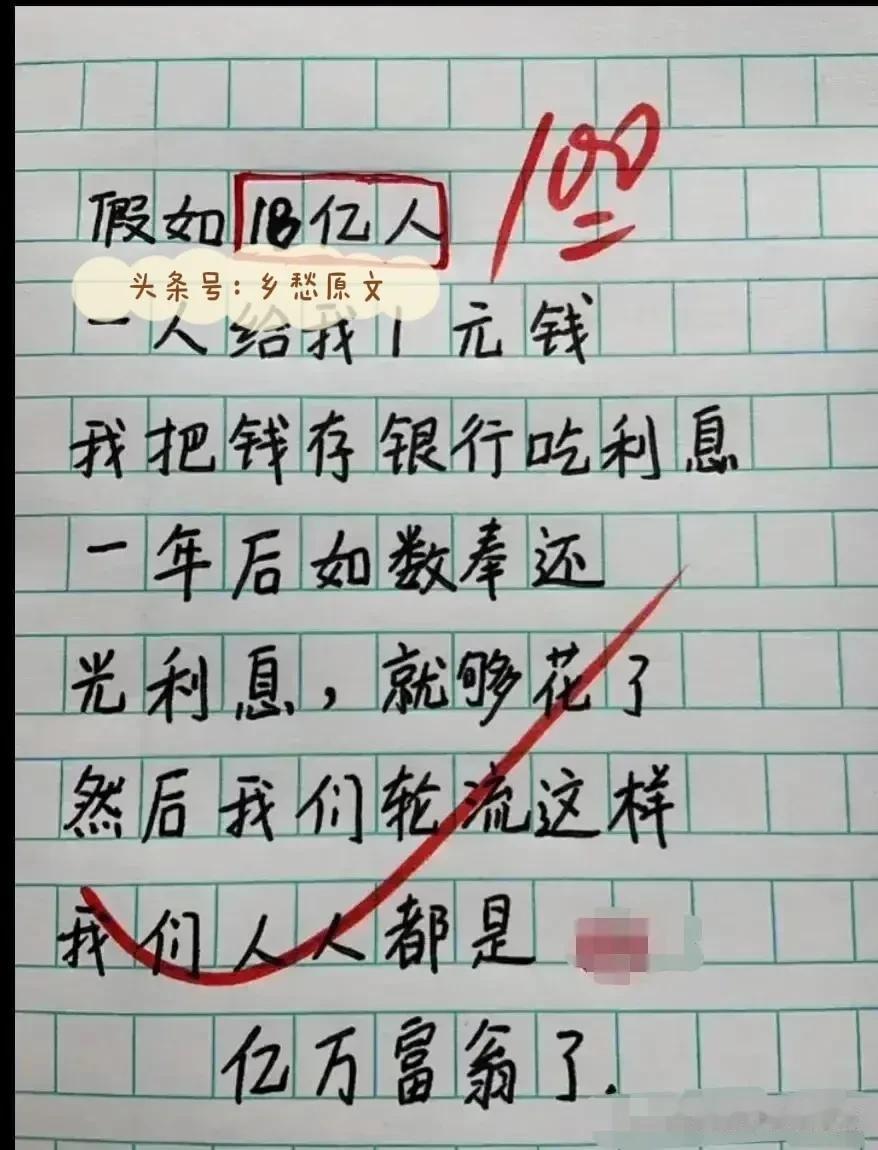 100
假如18亿人
头条号:乡愁原文
一人给我1元钱
我把钱存银行吃利息
一年后如数奉还
光利息,就够花了
然后我们轮流这样
我们人人都是
亿万富翁了.